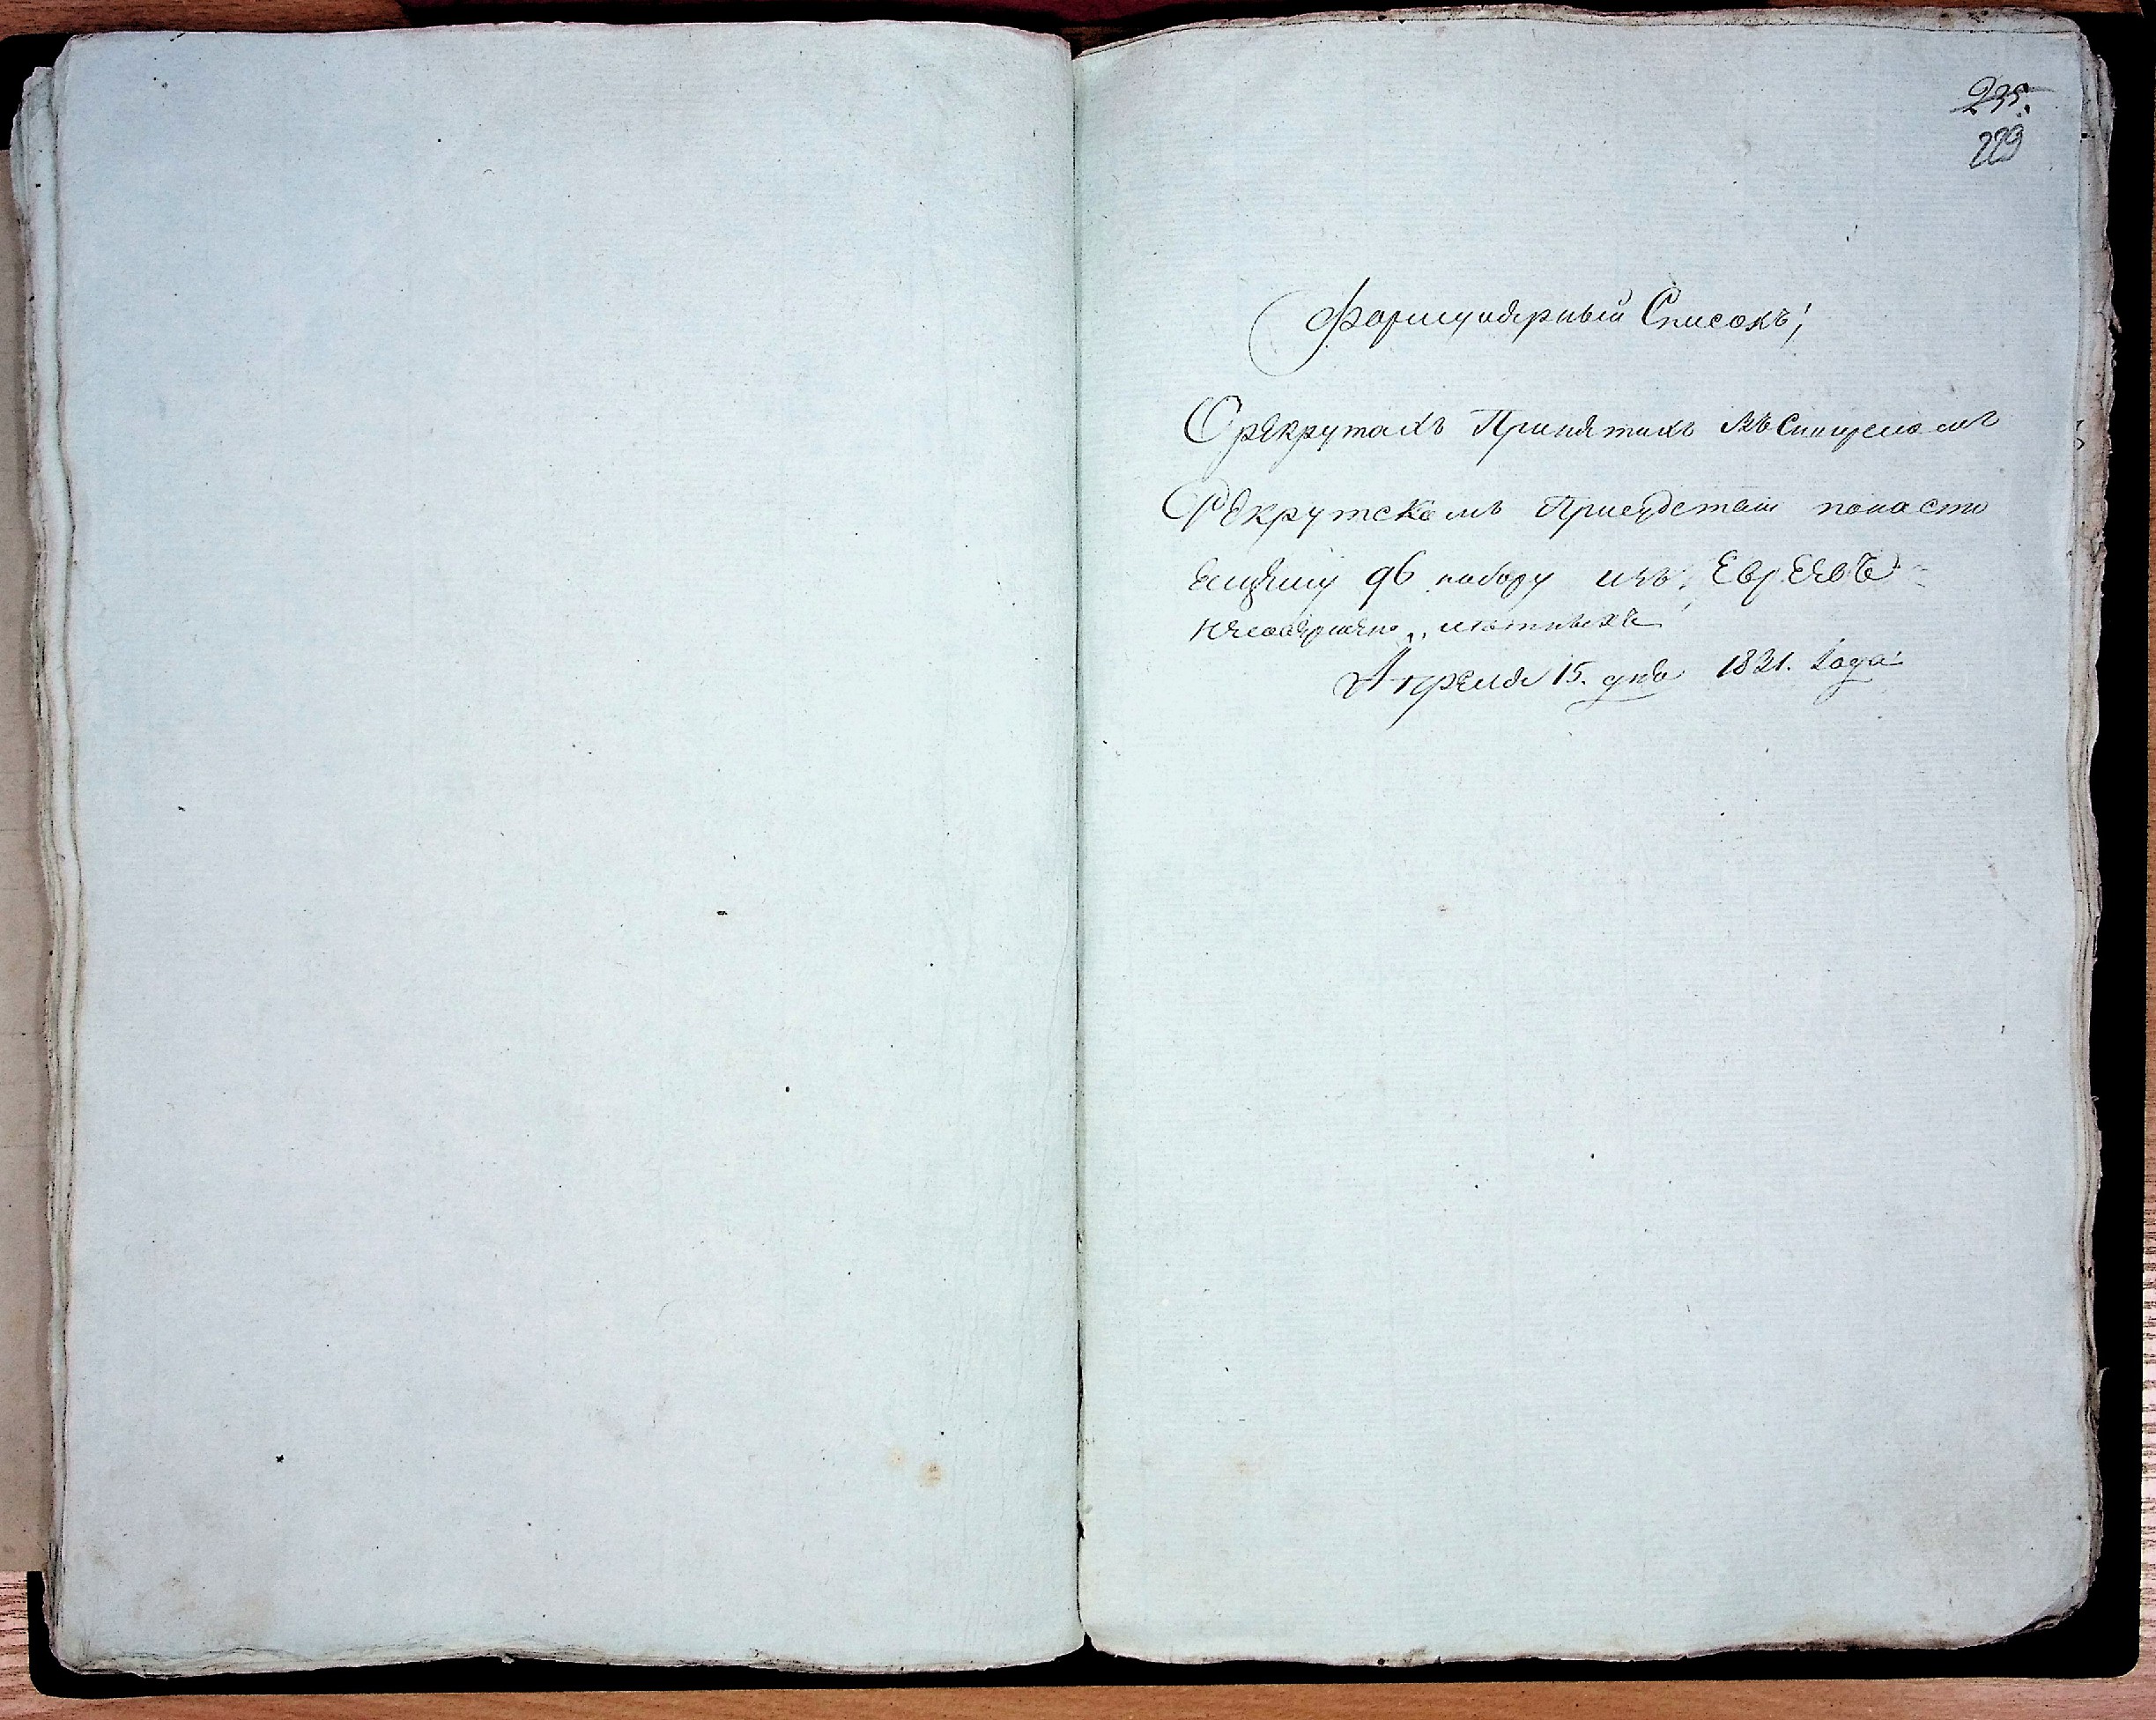 235.
223
Формулярный Списокъ;
О рекрутахъ Принятихъ въ
Рекрутскомъ Присудствіи по насто
ещему 96 набору изъ Евреевъ
несовершено летныхъ
Апреля 15. дня 1831. Года